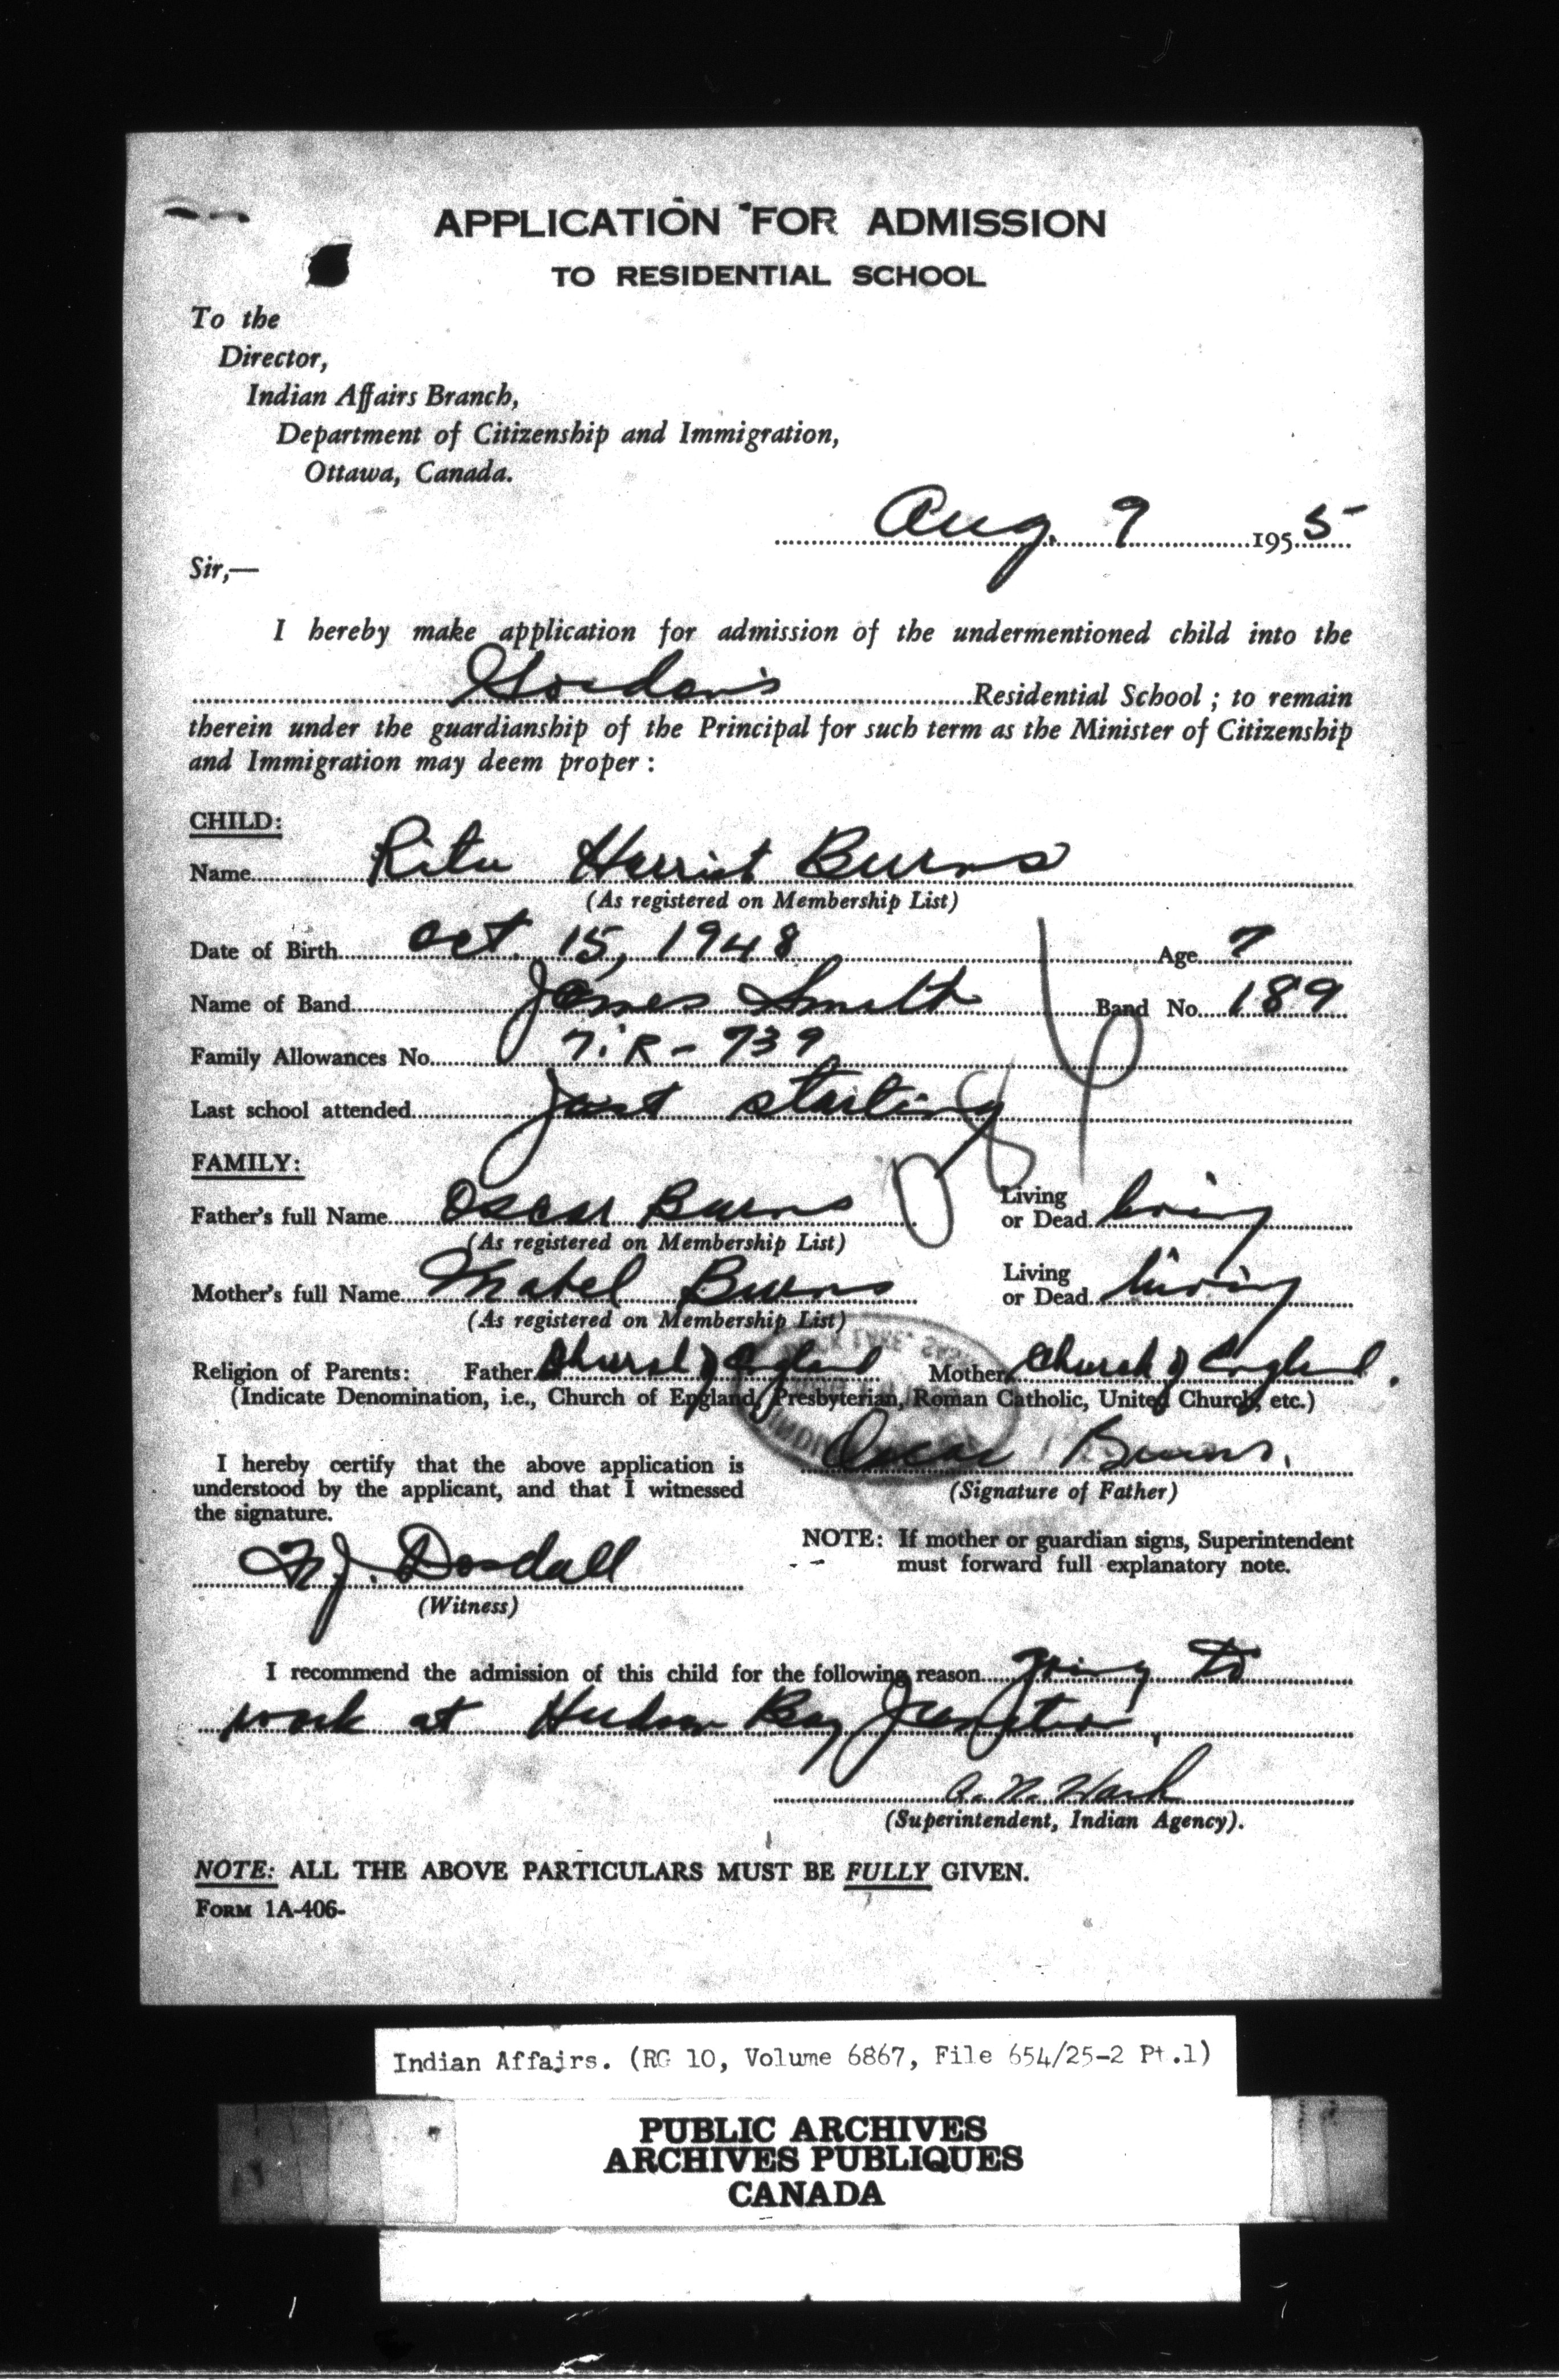 APPLICATION FOR ADMISSION
TO RESIDENTIAL SCHOOL
To the
Director,
Indian Affairs Branch,
Department of Citizenship and Immigration,
Ottawa, Canada.
Aug. 9 1955
Sir,—
I hereby make application for admission of the undermentioned child into the
Gordon's Residential School ; to remain
therein under the guardianship of the Principal for such term as the Minister of Citizenship
and Immigration may deem proper :
CHILD:
Name Rita Harriet Burns
(As registered on Membership List)
Date of Birth Oct. 15, 1948 Age 7
Name of Band James Smith Band No. 189
Family Allowances No. 7iR-739
Last school attended Just starting
FAMILY:
Father's full Name Oscar Burns Living or Dead living
(As registered on Membership List)
Mother's full Name Mabel Burns Living or Dead living
(As registered on Membership List)
Religion of Parents: Father Church of England Mother Church of England.
(Indicate Denomination, i.e., Church of England, Presbyterian, Roman Catholic, United Church, etc.)
Oscar Burns.
(Signature of Father)
I hereby certify that the above application is
understood by the applicant, and that I witnessed
the signature.
NOTE: If mother or guardian signs, Superintendent
must forward full explanatory note.
N.J. Dosdall
(Witness)
I recommend the admission of this child for the following reason going to
work at Hudson Bay Junction,
(Superintendent, Indian Agency).
NOTE: ALL THE ABOVE PARTICULARS MUST BE FULLY GIVEN.
FORM 1A-406-
Indian Affairs. (RG 10, Volume 6867, File 654/25-2 Pt.1)
PUBLIC ARCHIVES
ARCHIVES PUBLIQUES
CANADA